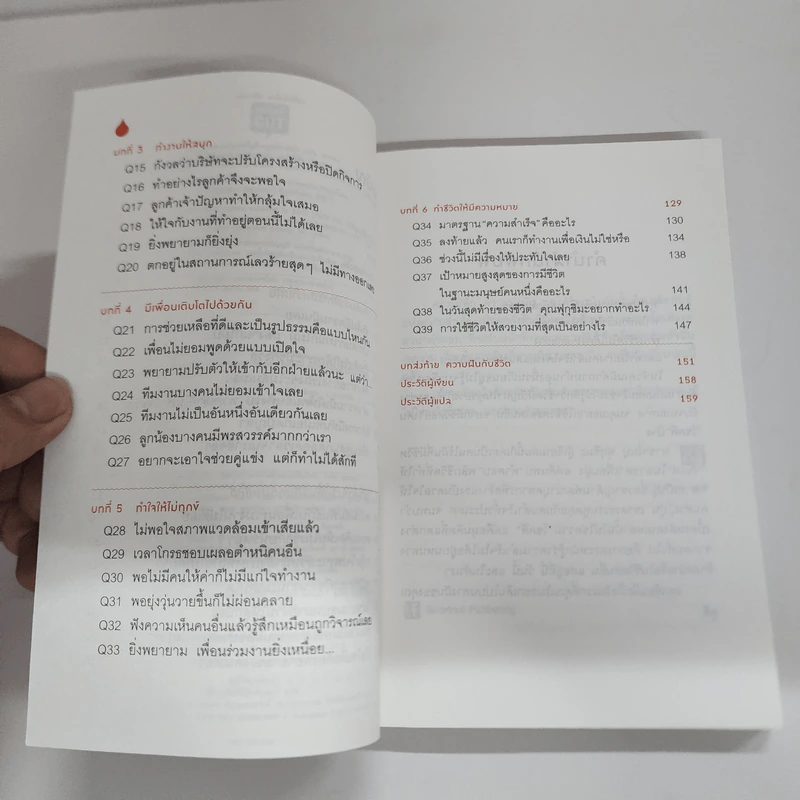 บทที่ 3 ทำงานให้สนุก
Q15 กังวลว่าบริษัทจะปรับโครงสร้างหรือปิดกิจการ
Q16 ทำอย่างไรลูกค้าจึงจะพอใจ
Q17 ลูกค้าเจ้าปัญหาทำให้กลุ้มใจเสมอ
Q18 ให้ใจกับงานที่ทำอยู่ตอนนี้ไม่ได้เลย
Q19 ยิ่งพยายามก็ยิ่งยุ่ง
Q20 ตกอยู่ในสถานการณ์เลวร้ายสุดๆ ไม่มีทางออกเลย
บทที่ 4 มีเพื่อนเติบโตไปด้วยกัน
Q21 การช่วยเหลือที่ดีและเป็นรูปธรรมคือแบบไหนกัน
Q22 เพื่อนไม่ยอมพูดด้วยแบบเปิดใจ
Q23 พยายามปรับตัวให้เข้ากับอีกฝ่ายแล้วนะ แต่ว่า...
Q24 ทีมงานบางคนไม่ยอมเข้าใจเลย
Q25 ทีมงานไม่เป็นอันหนึ่งอันเดียวกันเลย
Q26 ลูกน้องบางคนมีพรสวรรค์มากกว่าเรา
Q27 อยากจะเอาใจช่วยคู่แข่ง แต่ก็ทำไม่ได้สักที
บทที่ 5 ทำใจให้ไม่ทุกข์
Q28 ไม่พอใจสภาพแวดล้อมเข้าเสียแล้ว
Q29 เวลาโกรธชอบเผลอตำหนิคนอื่น
Q30 พอไม่มีคนให้ค่าก็ไม่มีแก่ใจทำงาน
Q31 พอยุ่งวุ่นวายขึ้นก็ไม่ผ่อนคลาย
Q32 ฟังความเห็นคนอื่นแล้วรู้สึกเหมือนถูกวิจารณ์เลย
Q33 ยิ่งพยายาม เพื่อนร่วมงานยิ่งเหนื่อย...
บทที่ 6 ทำชีวิตให้มีความหมาย 129
Q34 มาตรฐาน "ความสำเร็จ" คืออะไร 130
Q35 ลงท้ายแล้ว คนเราก็ทำงานเพื่อเงินไม่ใช่หรือ 134
Q36 ช่วงนี้ไม่มีเรื่องให้ประทับใจเลย 138
Q37 เป้าหมายสูงสุดของการมีชีวิต
ในฐานะมนุษย์คนหนึ่งคืออะไร 141
Q38 ในวันสุดท้ายของชีวิต คุณฟุกุชิมะอยากทำอะไร 144
Q39 การใช้ชีวิตให้สวยงามที่สุดเป็นอย่างไร 147
บทส่งท้าย ความฝันกับชีวิต 151
ประวัติผู้เขียน 158
ประวัติผู้แปล 159